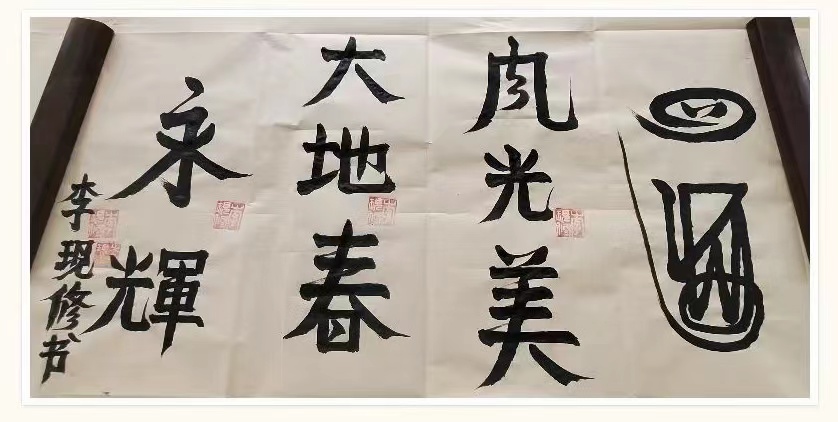 风光美
大地春
永輝
李现修书